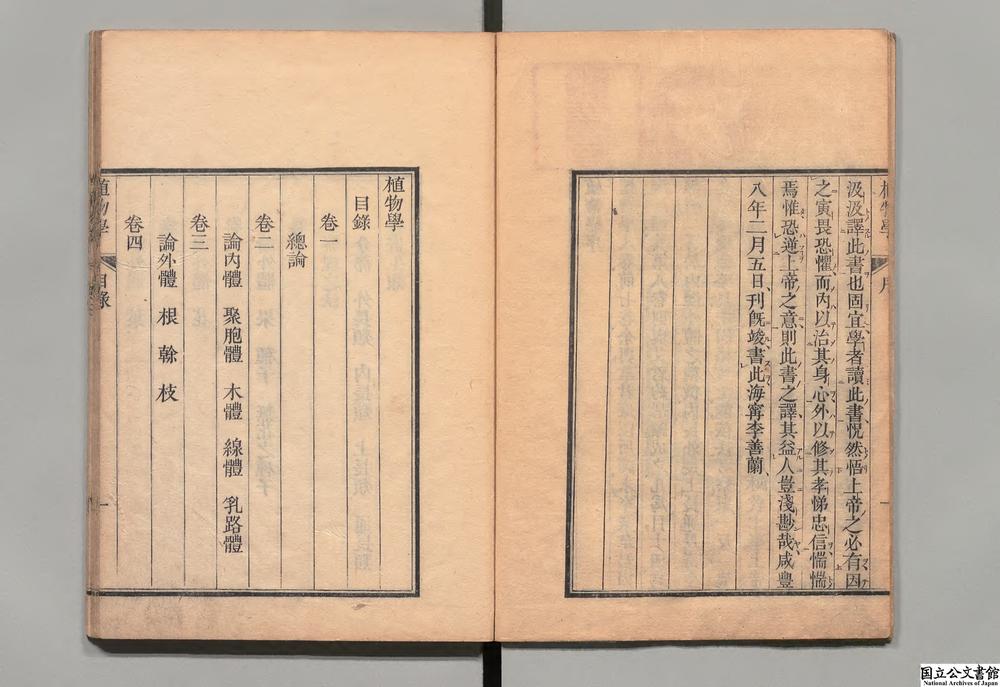 汲汲譯此書也固宜學者讀此書恍然悟上帝之必有因
之寅畏恐懼而內以治其身心外以修其孝悌忠信惴惴
焉惟恐逆上帝之意則此書之譯其益人豈淺尠哉咸豐
八年二月五日刊既竣書此海寧李善蘭
植物學
目錄
卷一
總論
卷二
論內體 聚胞體 木體 線體 乳路體
卷三
論外體 根 榦 枝
卷四
植物學 目錄 一
国立公文書館
National Archives of Japan